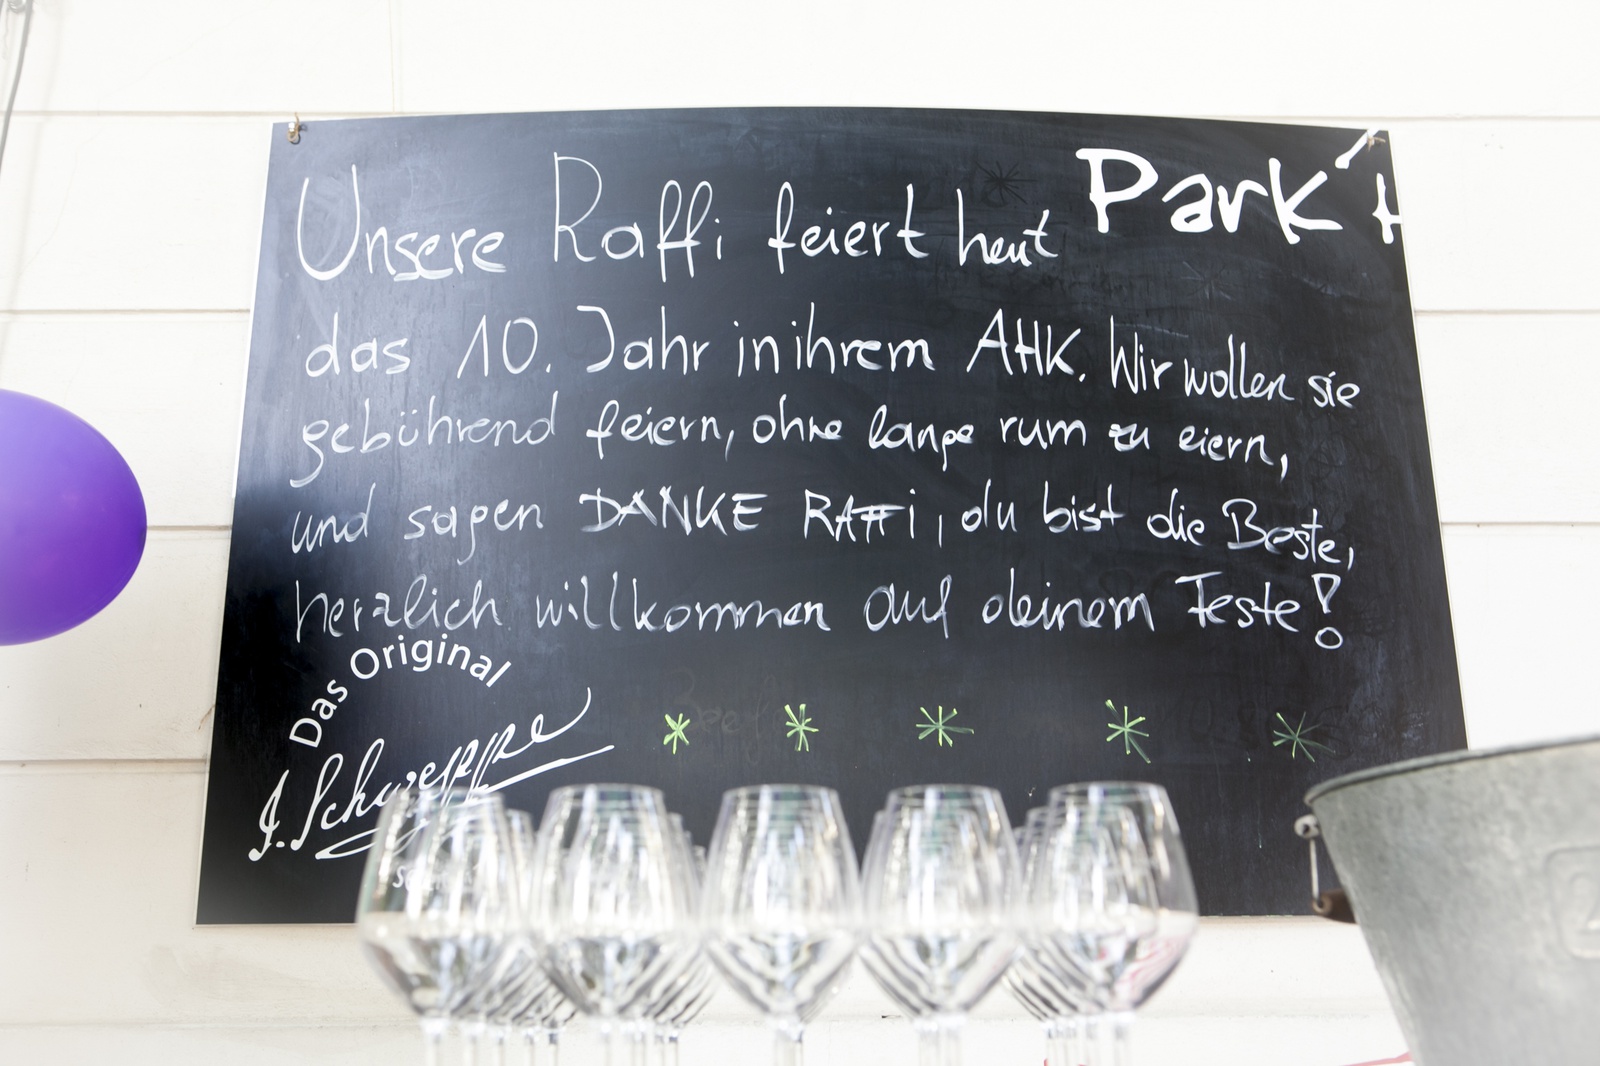 Unsere Raffi feiert heut
Park'
das 10. Jahr in ihrem AHK. Wir wollen sie
gebührend feiern, ohne lange rum zu eiern,
und sagen DANKE RAffi, du bist die Beste,
herzlich willkommen auf deinem Feste!
Das Original
J. Schweppe